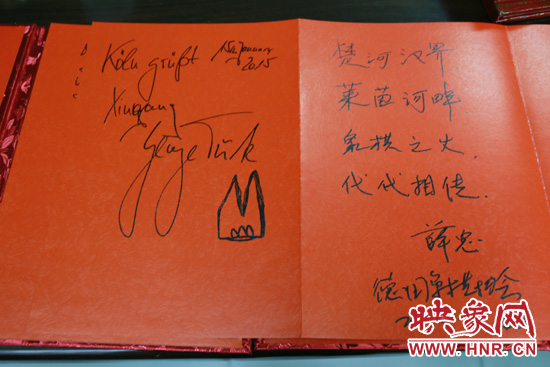 Köln grüßt
15. Januar
2015
Xinyang
Türk
楚河汉界
莱茵河畔
象棋之火
代代相传.
薛忠
德国象棋协会
映象网
WWW.HNR.CN